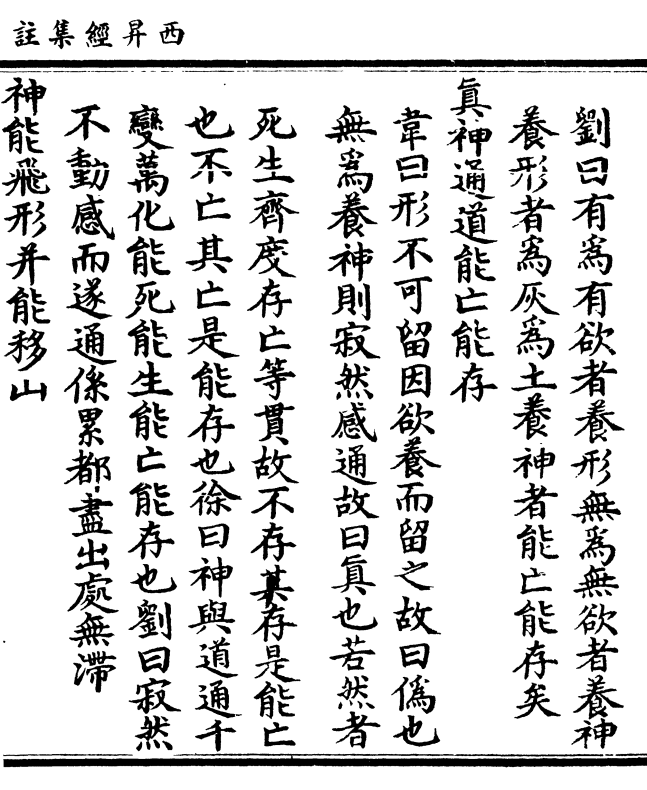 西昇經集註
劉曰有爲有欲者養形無爲無欲者養神
養形者爲灰爲土養神者能亡能存矣
眞神通道能亡能存
韋曰形不可留因欲養而留之故曰僞也
無爲養神則寂然感通故曰眞也若然者
死生齊度存亡等貫故不存其存是能亡
也不亡其亡是能存也徐曰神與道通千
變萬化能死能生能亡能存也劉曰寂然
不動感而遂通係累都盡出處無滯
神能飛形并能移山